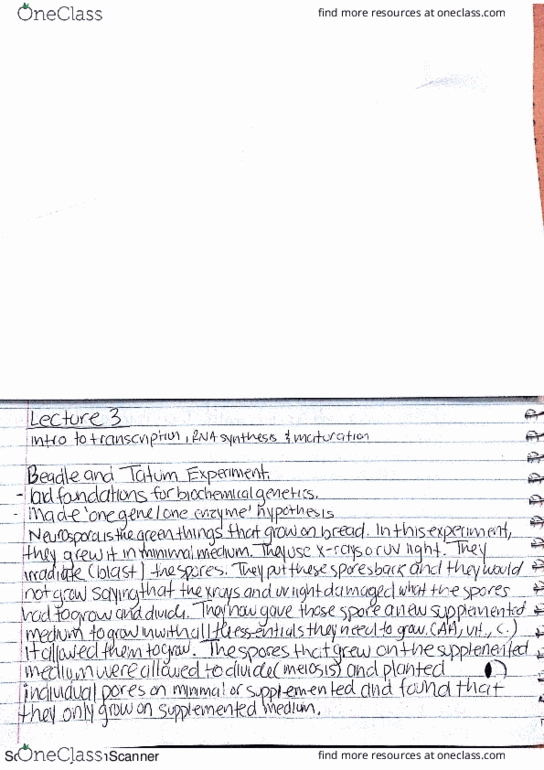 OneClass
find more resources at oneclass.com
Lecture 3
intro to transcription, RNA synthesis & maturation
Beadle and Tatum Experiment.
- laid foundations for biochemical genetics.
- Made 'one gene/one enzyme' hypothesis
Neurospora is the green things that grow on bread. In this experiment,
they grew it in minimal medium. They use x-rays or uv light. They
irradiate (blast) the spores. They put these spores back and they would
not grow saying that the xrays and uv right damaged what the spores
had to grow and divide. They now gave those spore a new supplemented
medium to grow in with all the essentials they need to grow. (AA, vit., C.)
it allowed them to grow. The spores that grew on the supplemented
medium were allowed to divide (meiosis) and planted
individual pores on minimal or supplemented and found that
they only grow on supplemented medium.
OneClass
Scanner
find more resources at oneclass.com